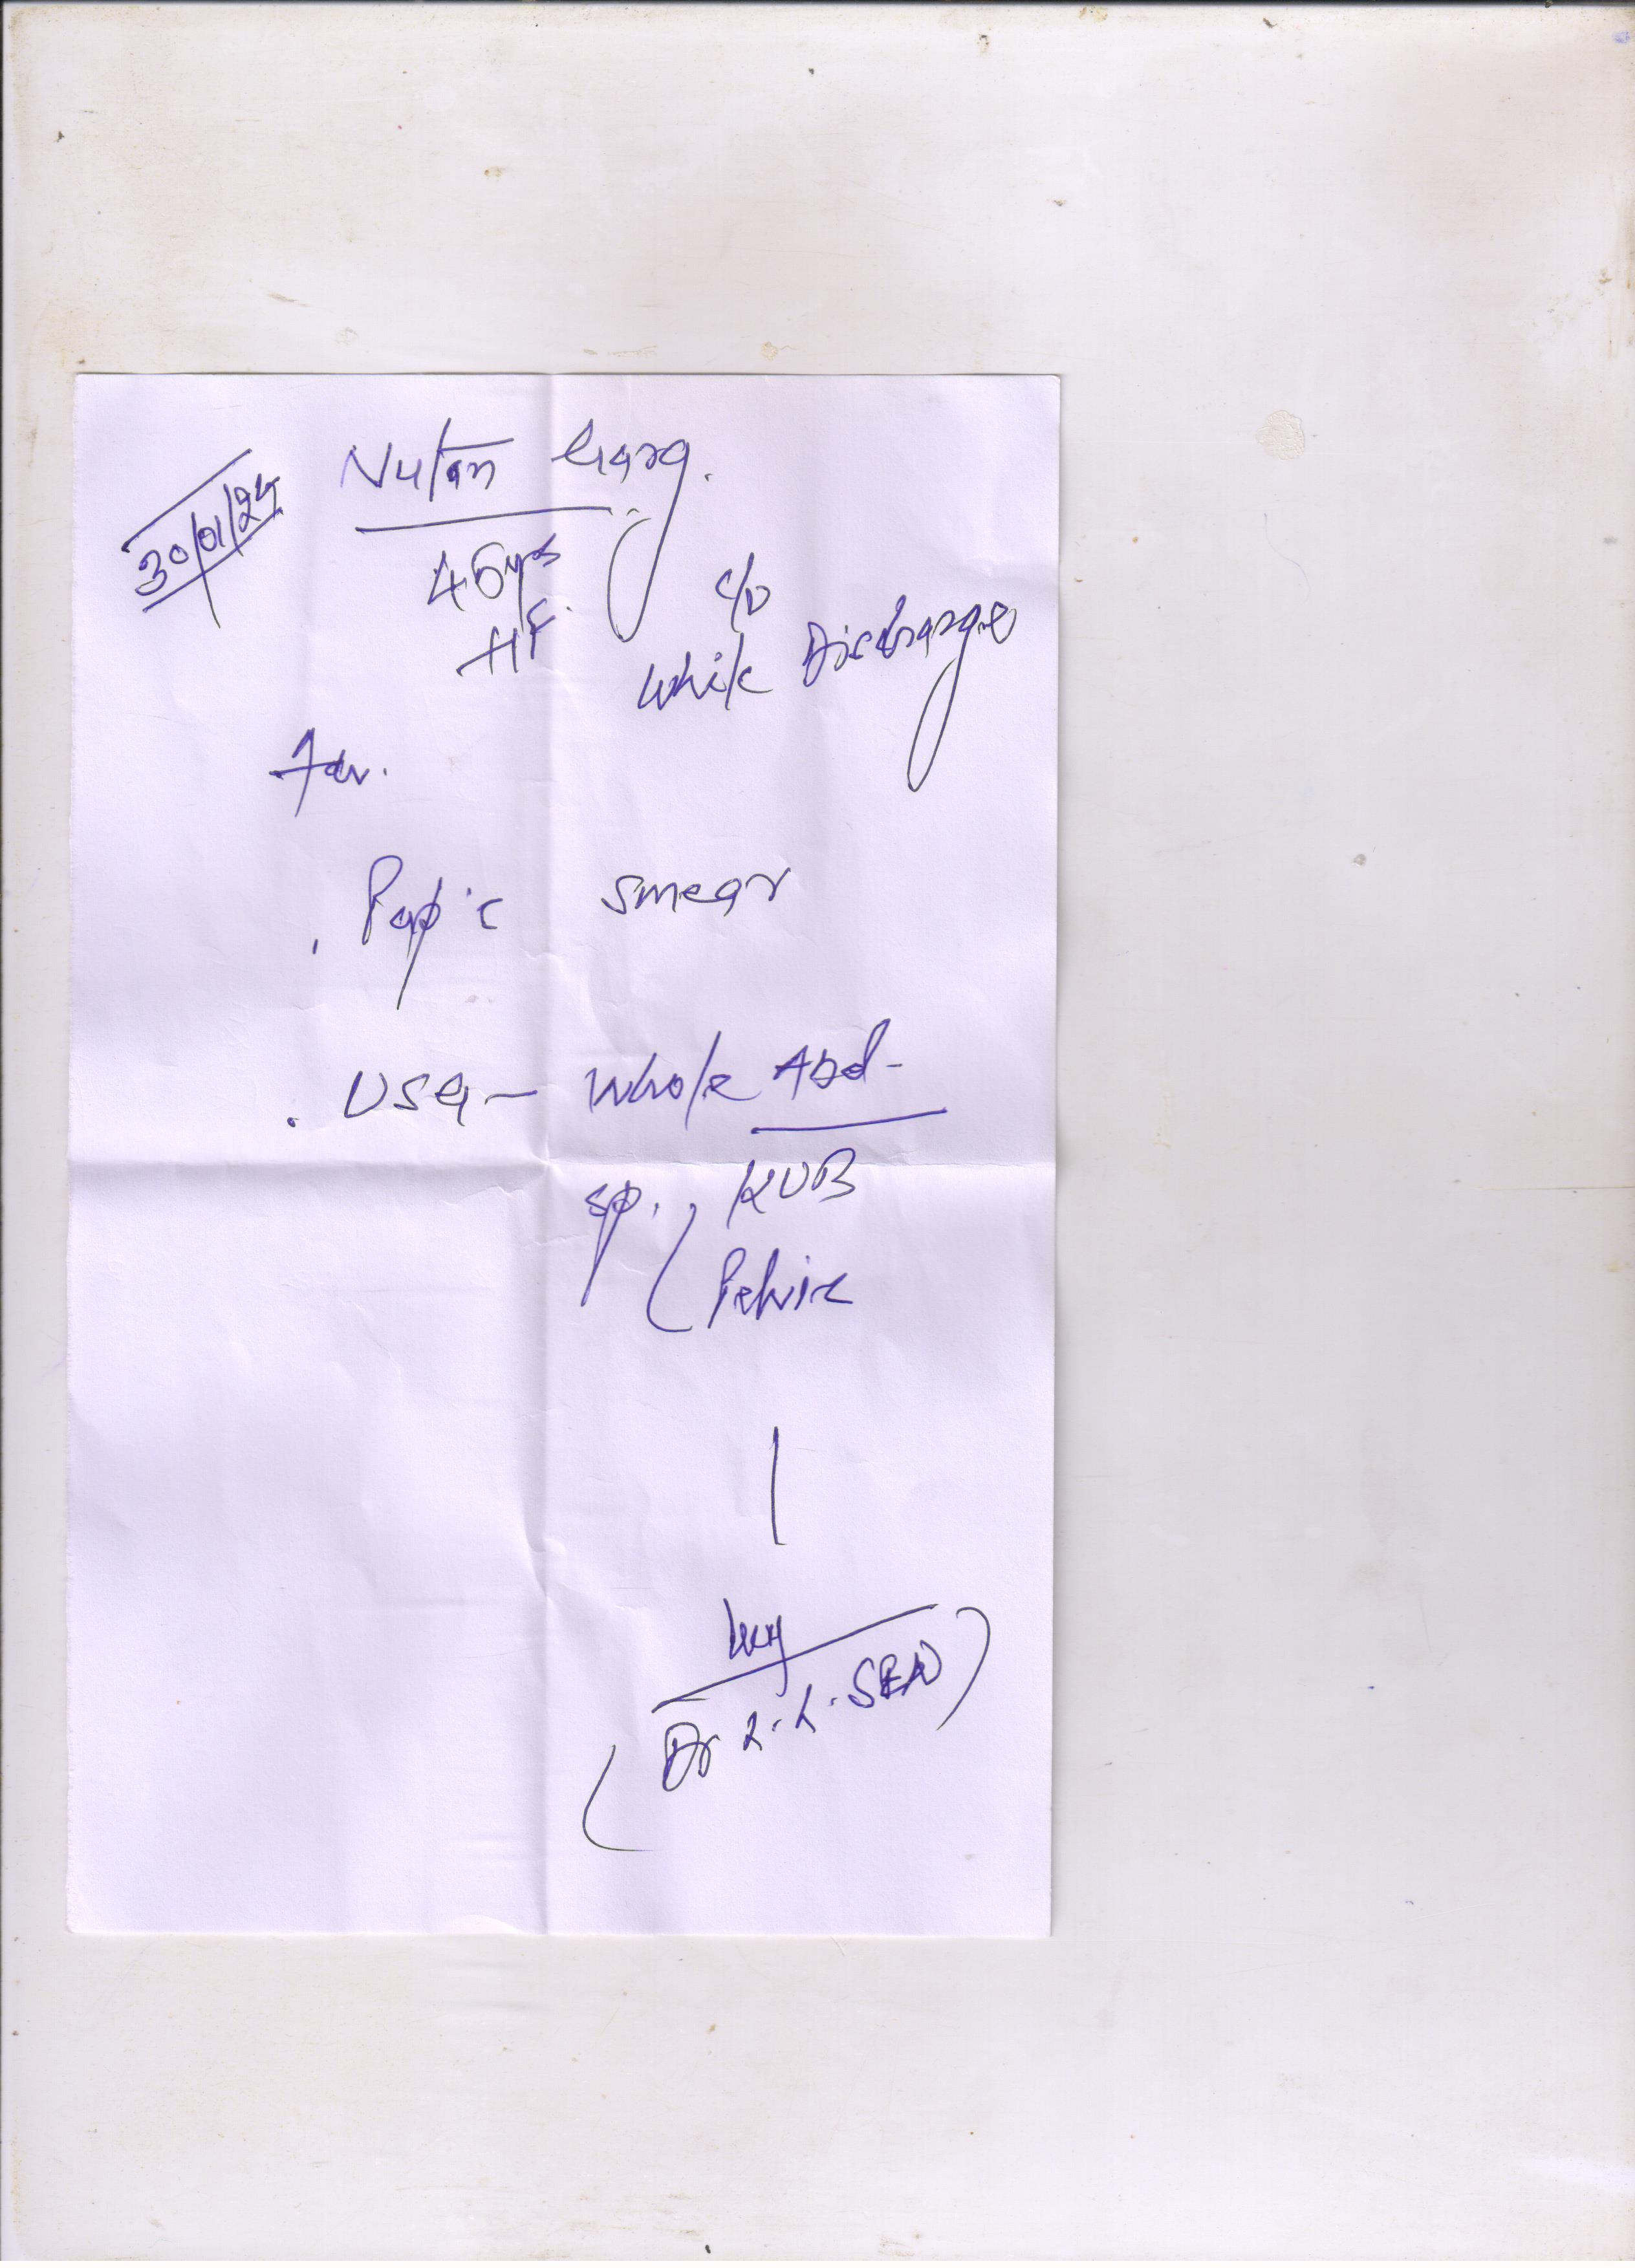 30/01/24
Nutan Garg.
45yrs
HF.
c/o
White Discharge
Adv.
. Pap's smear
. USG - Whole Abd-
sp. , KUB
Pelvic
(Dr L.L. SEN)